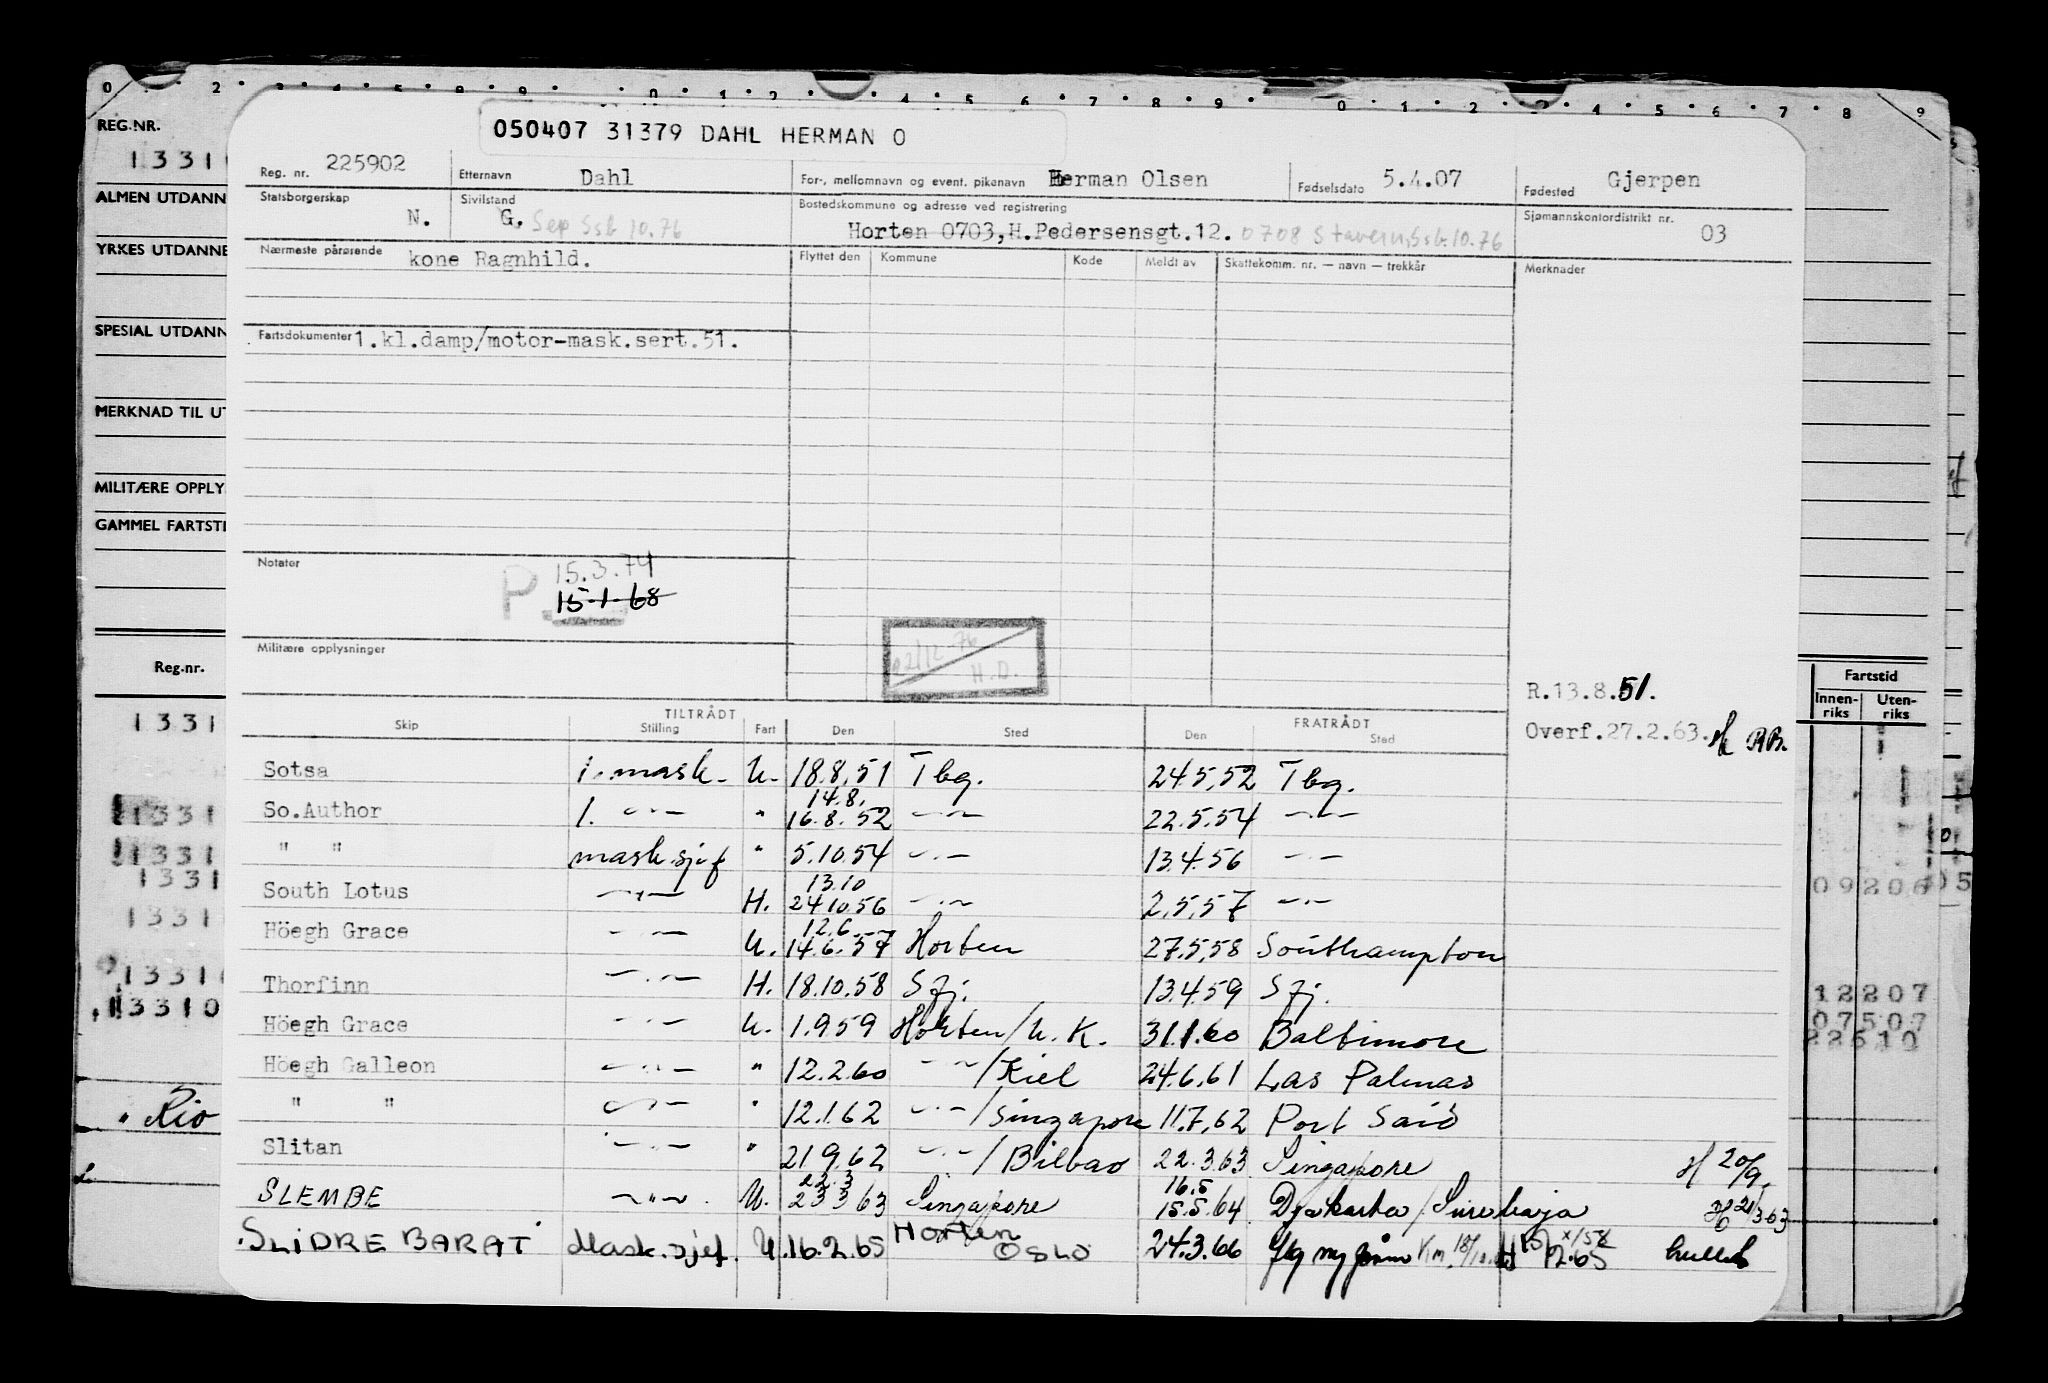 050407 31379 DAHL HERMAN O
REG.NR.
1331
Reg. nr. 225902 Etternavn Dahl For-, mellomnavn og event. pikenavn Herman Olsen Fødselsdato 5.4.07 Fødested Gjerpen
ALMEN UTDANN
Statsborgerskap N. Sivilstand G. Sep Ssb 10.76 Bostedskommune og adresse ved registrering Horten 0703, H.Pedersensgt.12. 0708 Stavern, Ssb. 10.76 Sjømannskontordistrikt nr. 03
YRKES UTDANNE
Nærmeste pårørende kone Ragnhild. Flyttet den Kommune Kode Meldt av Skattekomm. nr. — navn — trekkår Merknader
SPESIAL UTDANN
Fartsdokumenter 1.kl.damp/motor-mask.sert.51.
MERKNAD TIL UT
MILITÆRE OPPLY
GAMMEL FARTSTI
Notater P. 15.3.74
15-1-68
Militære opplysninger
H.D.
Reg.nr.
Fartstid
Innen-riks Uten-riks
R.13.8.51.
Overf.27.2.63. RB.
TILTRÅDT FRATRÅDT
Skip Stilling Fart Den Sted Den Sted
Sotsa 1. mask. U. 18.8.51 Tbg. 24.5.52 Tbg.
14.8.
So.Author 1. —"— " 16.8.52 —"— 22.5.54 —"—
" " mask.sjef " 5.10.54 —"— 13.4.56 —"—
13.10
South Lotus —"— H. 24.10.56 —"— 2.5.57 —"—
12.6
Höegh Grace —"— U. 14.6.57 Horten 27.5.58 Southampton
Thorfinn —"— H. 18.10.58 Sfj. 13.4.59 Sfj.
Höegh Grace —"— U. 1.9.59 Horten/U.K. 31.1.60 Baltimore
Höegh Galleon —"— " 12.2.60 —"—/Kiel 24.6.61 Las Palmas
" " —"— " 12.1.62 —"—/Singapore 11.7.62 Port Said
Slitan —"— " 21.9.62 —"—/Bilbao 22.3.63 Singapore H 20/9.
22.3 16.5
SLEMBE —"— U. 23.3.63 Singapore 15.5.64 Djakarta/Surabaja H 21/3 63
SLIDRE BARAT Mask.sjef. U. 16.2.65 Horten Oslo 24.3.66
1331
1331
1331
1331
1331
1331
13310
09206 05
12207
07507
22610
" Rio